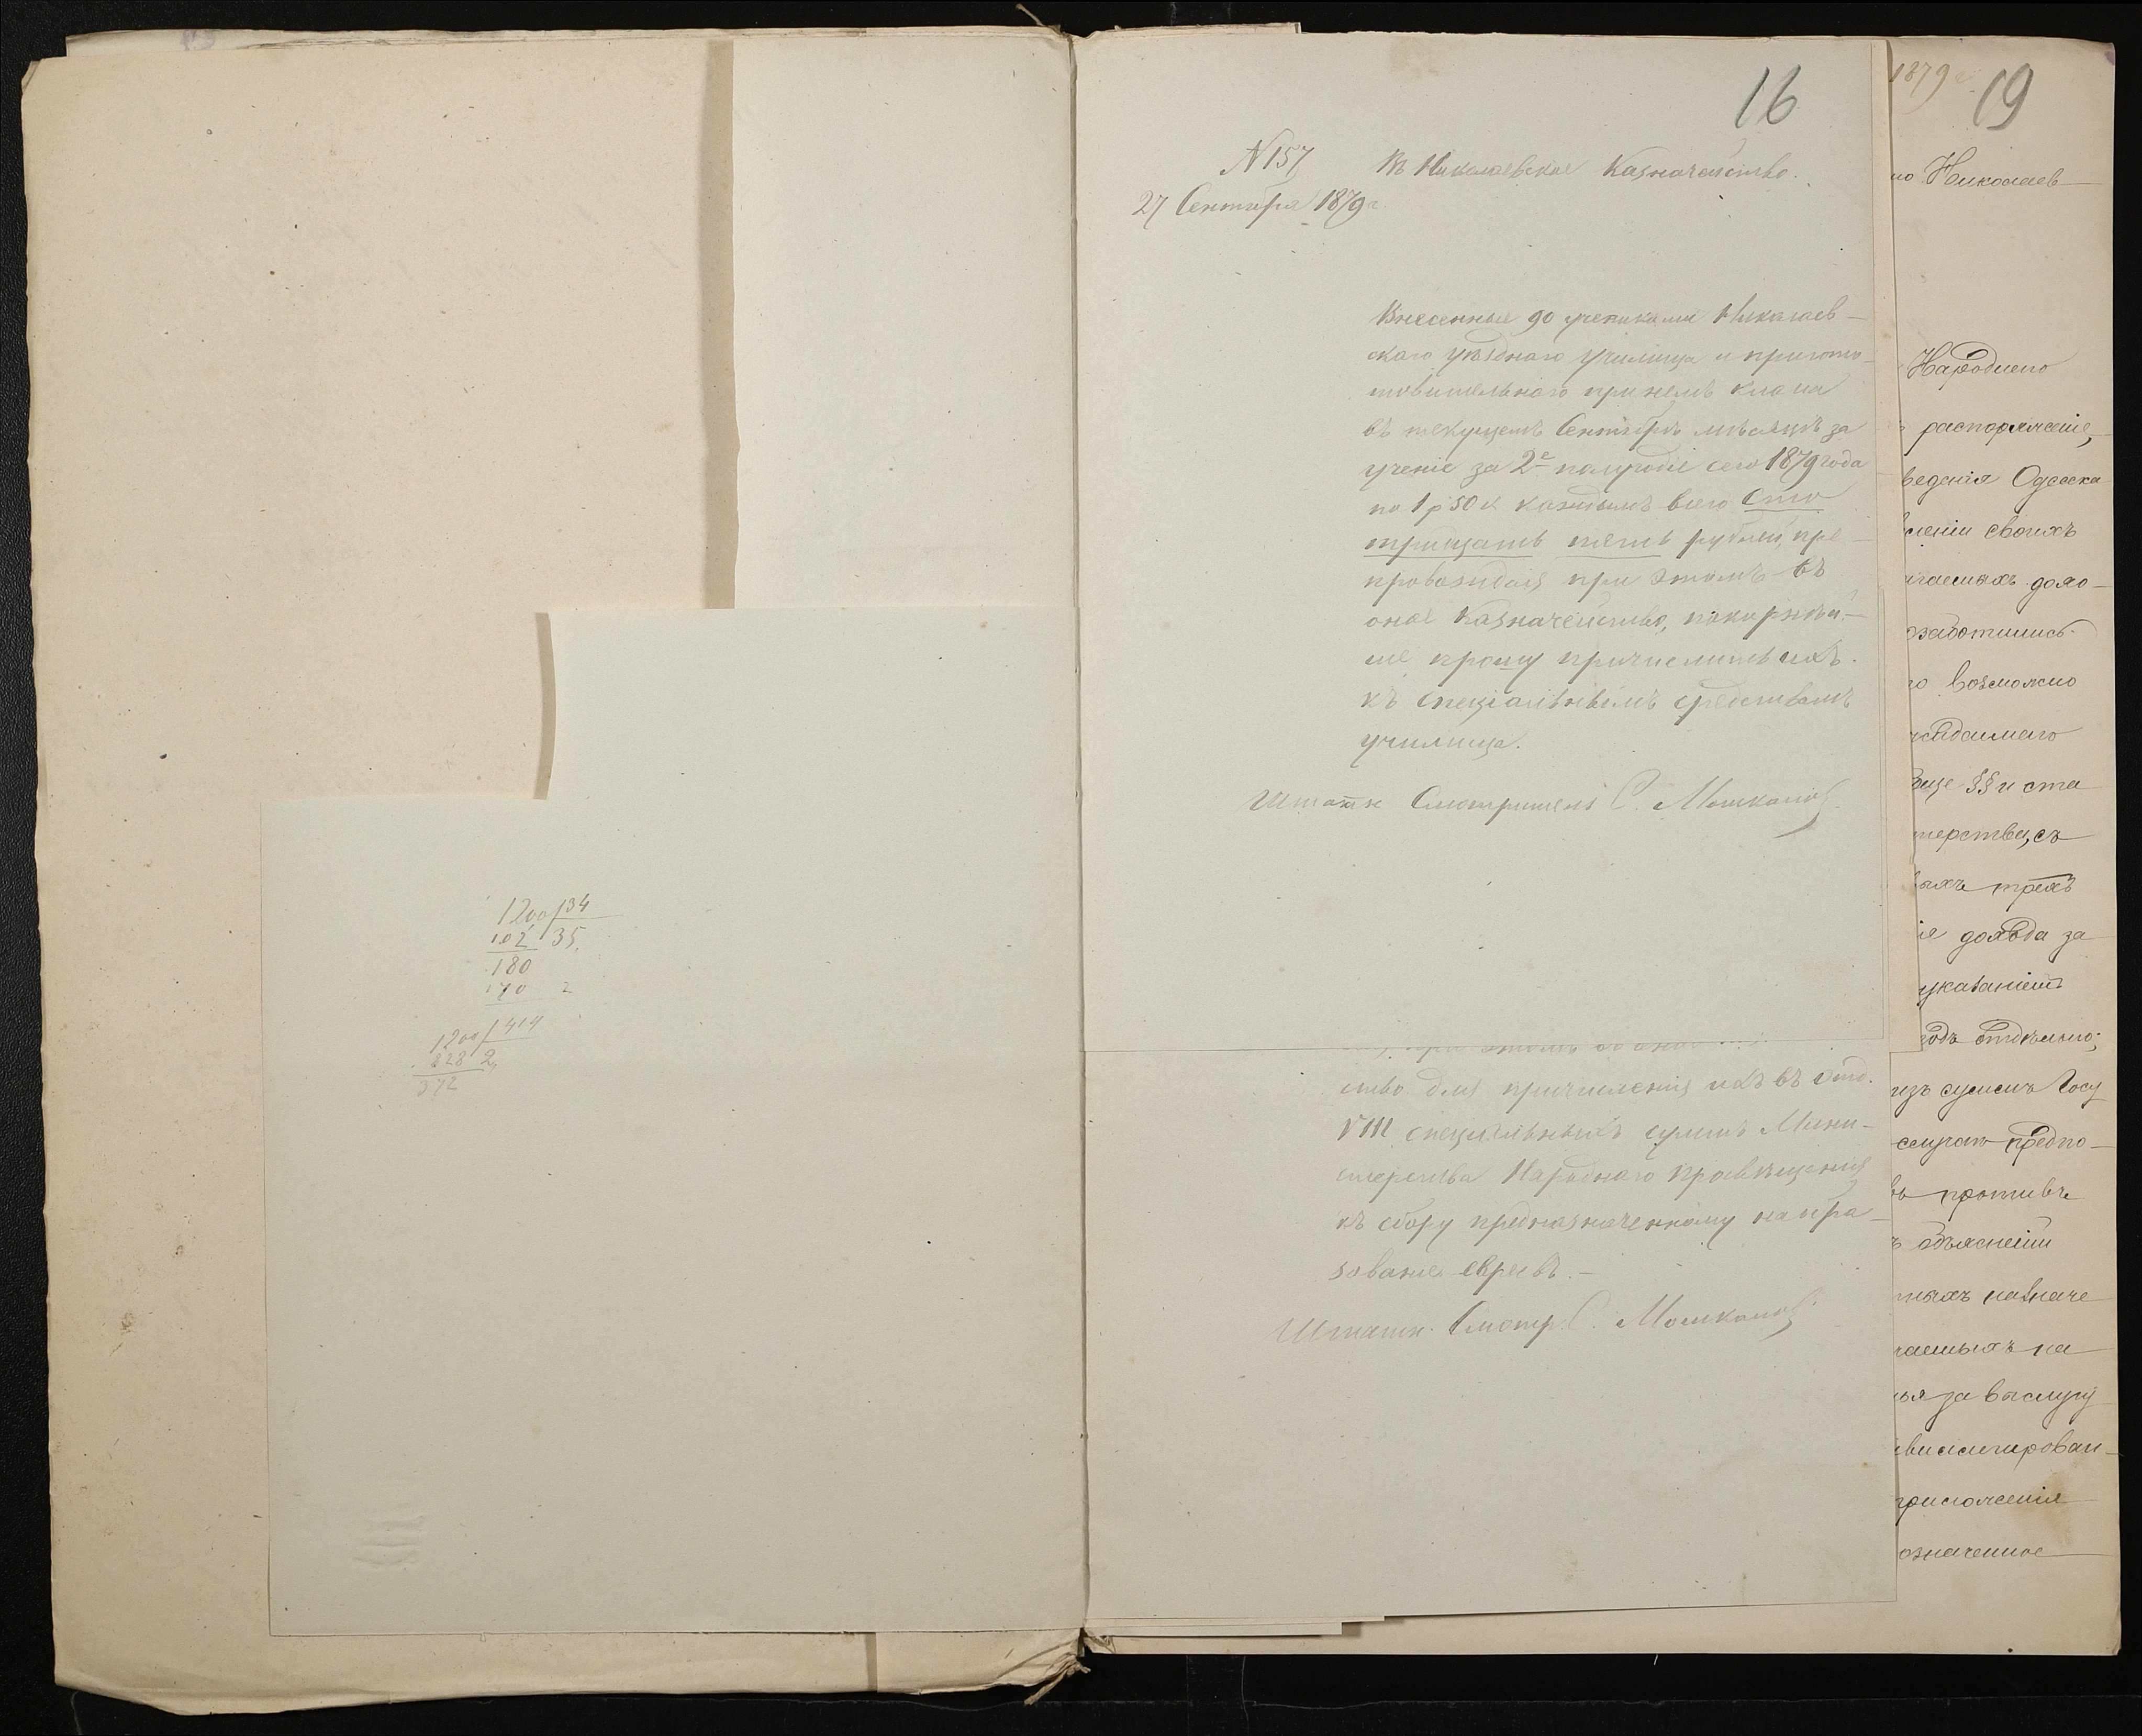 1200 34
102 35.
180
170 2
1200 414
828 2,
372
16
N 157
Въ Николаевское Казначейство.
27 Сентября 1879 г
Внесенные 90 учениками Николаев-
скаго уѣзднаго училища и пригото-
товительнаго при немъ класса
въ текущемъ Сентябрѣ мѣсяцѣ за
ученіе за 2е полугодіе сего 1879 года
по 1 р 50 к каждымъ всего Сто
тридцать пять рублей, пре-
провождая при этомъ въ
оное Казначейство, покорнѣй-
ше прошу причислить ихъ
къ спеціальнымъ средствамъ
училища.
Штатн Смотритель С. Мошканов
при этомъ въ оное
ство для причисленія ихъ въ отд.
VIII спеціальныхъ суммъ Мини-
стерства Народнаго Просвѣщенія
къ сбору предназначенному на обра-
зованіе евреевъ.-
Штатн. Смотр. С. Мошканов
1879 г. 19
Николаев-
Народнаго
распоряженіе,
веденія Одесска
сленіи своихъ
агаемыхъ дохо-
озаботились
возможно
ожидаемаго
§§ и ста
терства, съ
трехъ
дохода за
указаніемъ
годъ отдѣльно;
изъ суммъ Госу
предпо-
противъ
объясненіи
назначе
на
за выслугу
приложенія
означенное